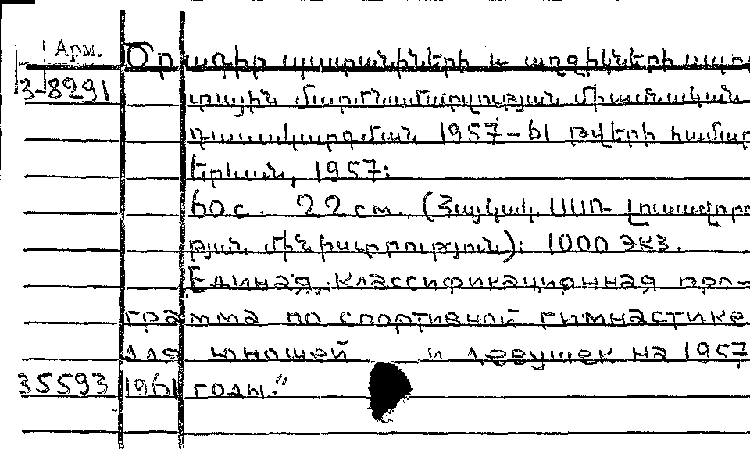 Арм. Օրագիր պատանիների և աղջիկների սպոր
3-8291 տային մարմնամարզության միասնական
դասակարգման 1957-61 թվերի համար
Երևան, 1957:
60 с. 22 см. (Հայկակ. ՍՍՌ Լուսավորու
թյան մինիստրություն): 1000 экз.
Единая классификационная про-
грамма по спортивной гимнастике
для юношей и девушек на 1957
35593 1961 годы."